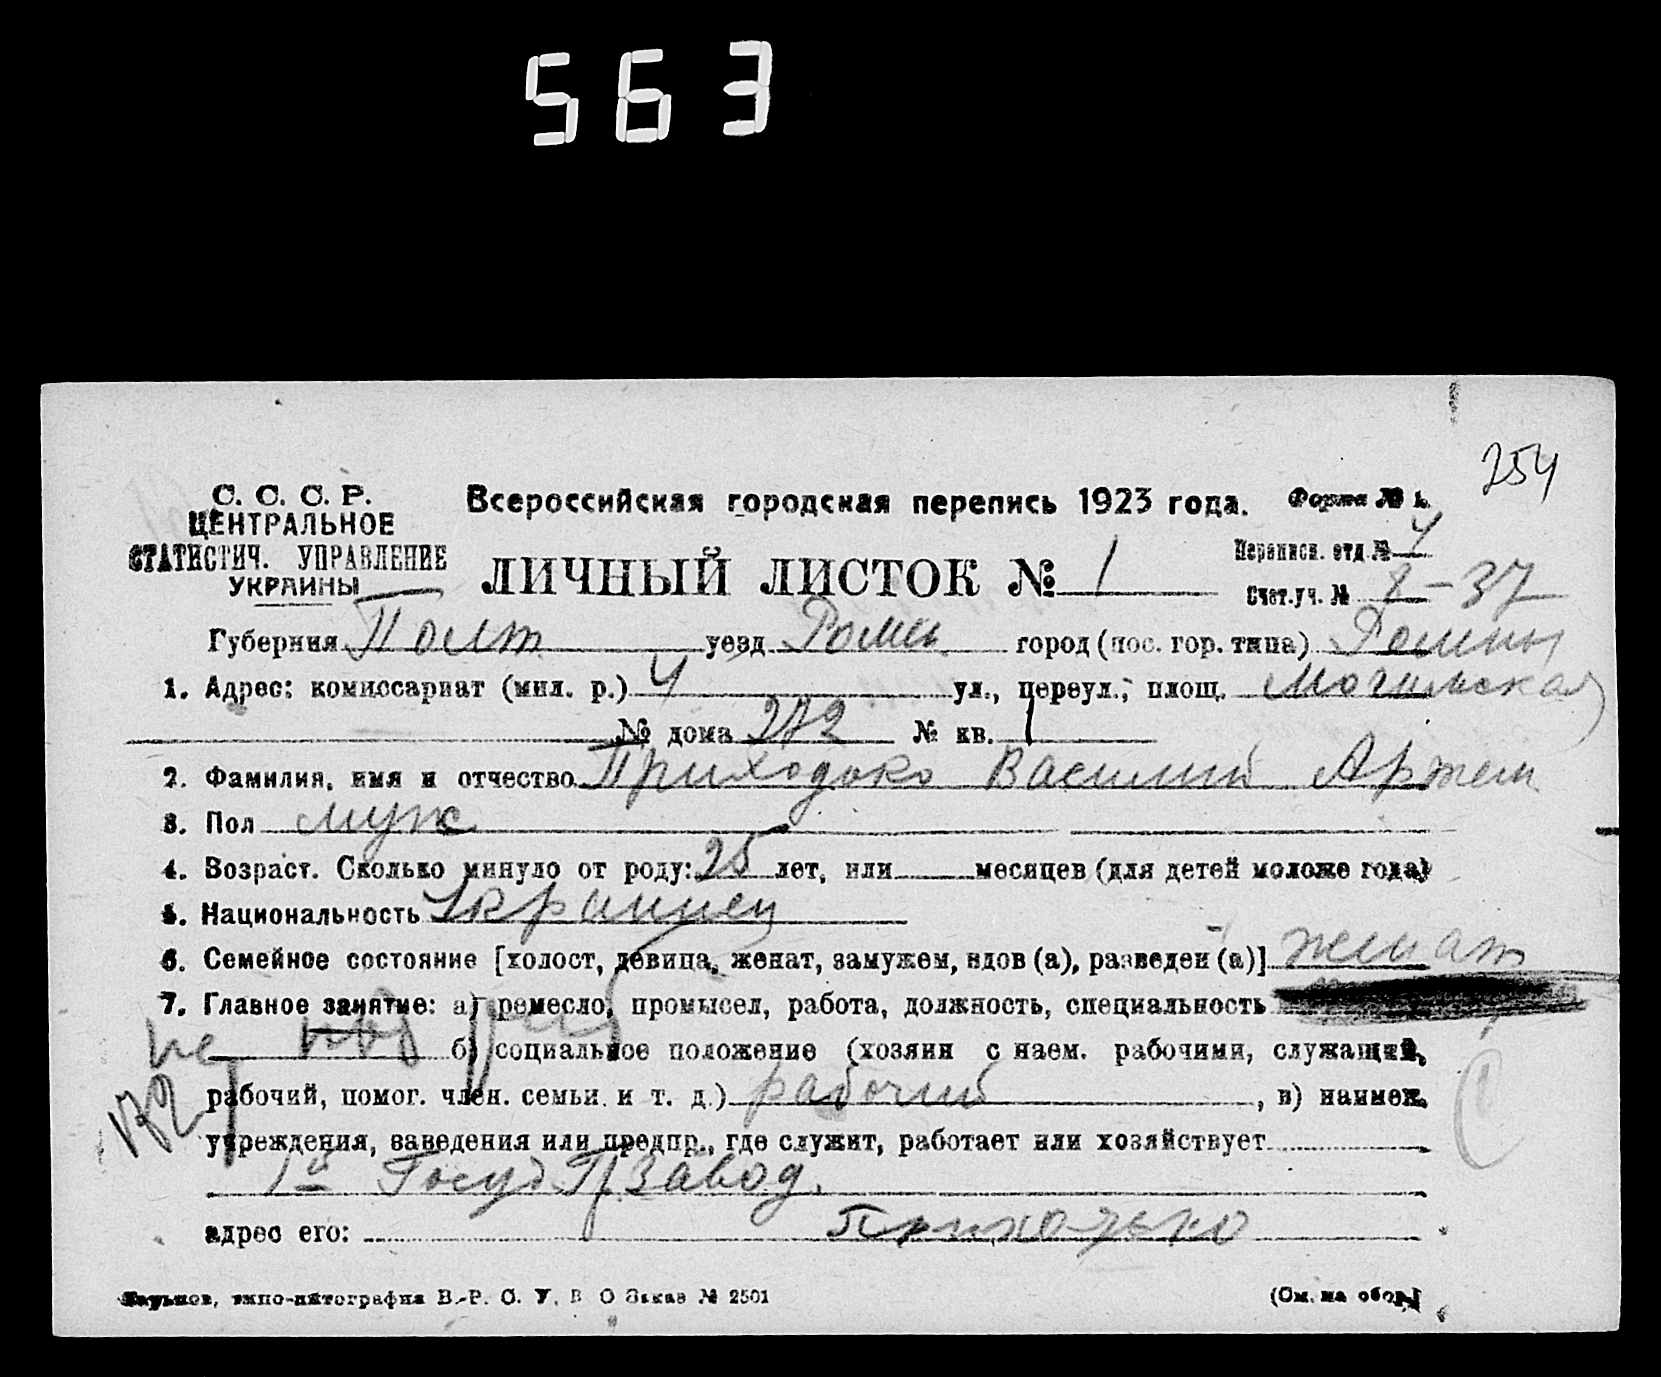 563
254
С. С. С. Р.
ЦЕНТРАЛЬНОЕ
СТАТИСТИЧ. УПРАВЛЕНИЕ
УКРАИНЫ
Всероссийская городская перепись 1923 года.
Форма № 1.
ЛИЧНЫЙ ЛИСТОК № 1
Переписн. отд. № 4
Счет. уч. № 8-37
Губерния Полт уезд Ромен город (пос. гор. типа) Ромны
1. Адрес: комиссариат (мил. р.) 4 ул., переул., площ.
№ дома 272 № кв. 1
2. Фамилия, имя и отчество Приходько Василий Артем
3. Пол муж
4. Возраст. Сколько минуло от роду: 25 лет, или месяцев (для детей моложе года)
5. Национальность Украинец
6. Семейное состояние [холост, девица, женат, замужем, вдов (а), разведен (а)] женат
7. Главное занятие: а) ремесло, промысел, работа, должность, специальность
б) социальное положение (хозяин с наем. рабочими, служащий,
рабочий, помог. член. семьи и т. д.) рабочий, в) наимен.
учреждения, заведения или предпр., где служит, работает или хозяйствует
1й Госуд. Завод.
адрес его: Приходько
Харьков, типо-литография В.-Р. С. У. В О Заказ № 2501
(См. на обор.)